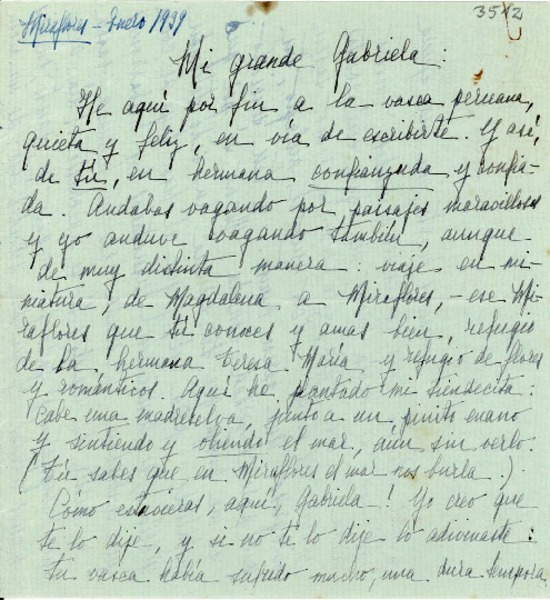 Miraflores - Enero 1939
3542
Mi grande Gabriela:
He aquí por fin a la vasca peruana,
quieta y feliz, en vía de escribirte. Y así,
de tú, en hermana confianzuda y confia-
da. Andabas vagando por paisajes maravillosos
y yo anduve vagando también, aunque
de muy distinta manera: viaje en mi-
niatura, de Magdalena a Miraflores, - ese Mi-
raflores que tú conoces y amas bien, refugio
de la hermana Teresa María y refugio de flores
y románticos. Aquí he plantado mi tiendecita:
cabe una madreselva, junto a un pinito enano
y sintiendo y oliendo el mar, aun sin verlo.
(Tú sabes que en Miraflores el mar nos burla.)
Cómo estuvieras, aquí, Gabriela! Yo creo que
te lo dije, y si no te lo dije lo adivinaste:
tu vasca había sufrido mucho, una dura tempora